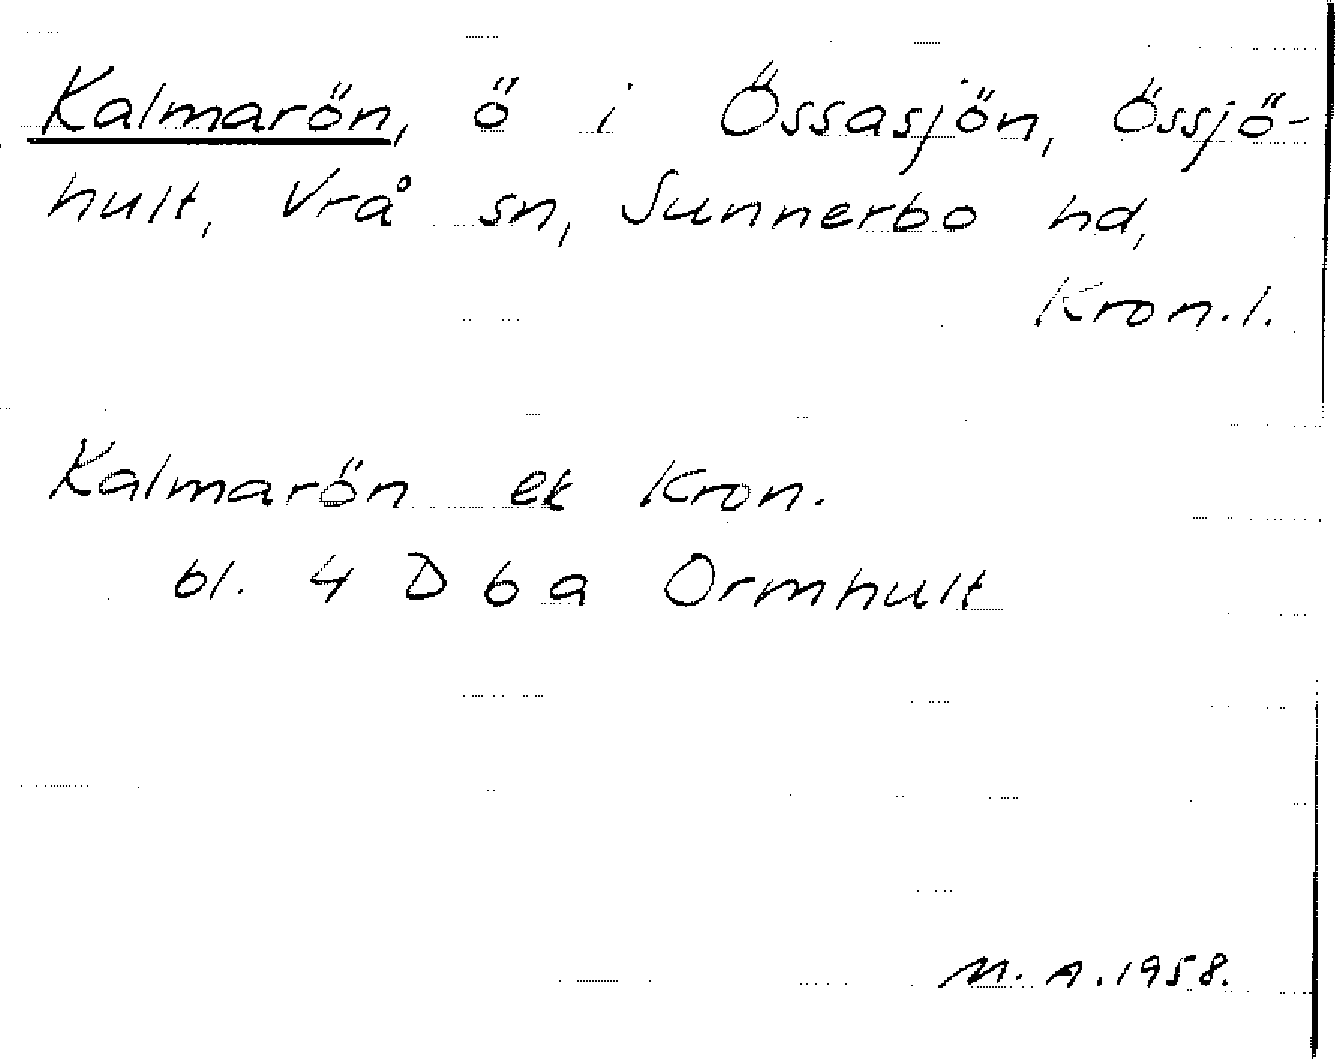 Kalmarön, ö i Össasjön, Össjö-
hult, Vrå sn, Sunnerbo hd,
Kron.l.
Kalmarön ek Kron.
bl. 4 D 6 a Ormhult
M.A.1958.